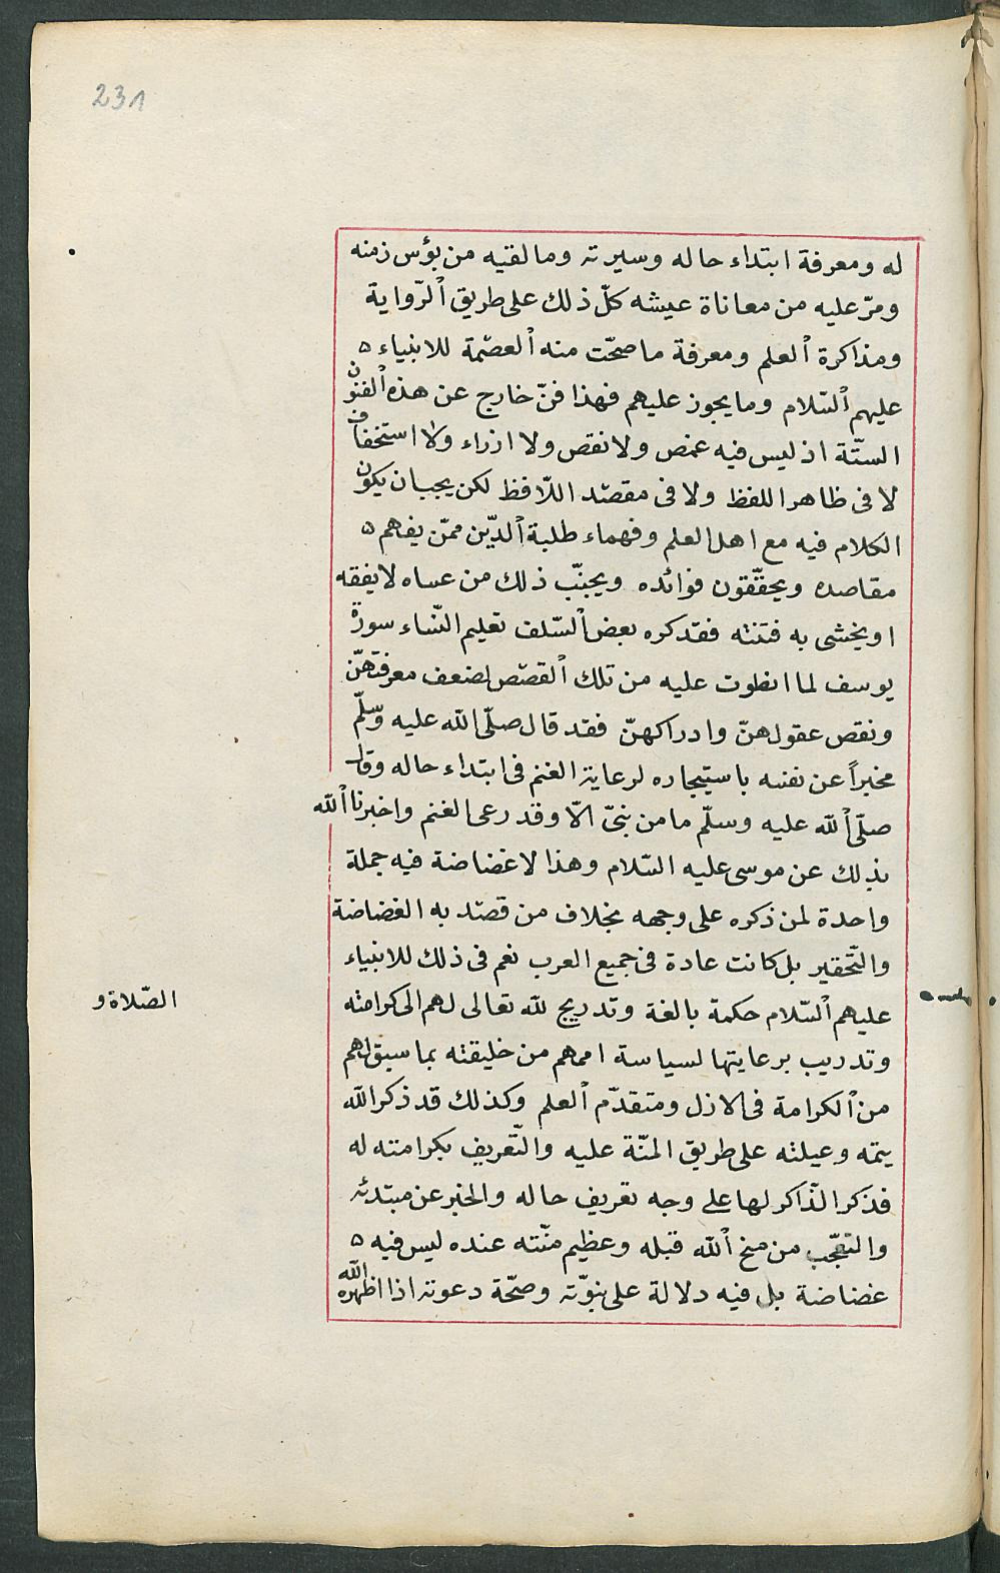 231
له ومعرفة ابتداء حاله وسيرته وما لقيه من بؤس زمنه
ومرّ عليه من معاناة عيشه كلّ ذلك على طريق الرّواية
ومذاكرة العلم ومعرفة ما صحّت منه العصمة للانبياء
عليهم السّلام وما يجوز عليهم فهذا فنّ خارج عن هذه الفنون
الستّة اذ ليس فيه غمص ولا نقص ولا ازراء ولا استخفاف
لا فى ظاهر اللفظ ولا فى مقصد اللّافظ لكن يجب ان يكون
الكلام فيه مع اهل العلم وفهماء طلبة الدّين ممّن يفهم
مقاصده ويحقّقون فوائده ويجنّب ذلك من عساه لا يفقه
او يخشى به فتنته فقد كره بعض السّلف تعليم النّساء سورة
يوسف لما انطوت عليه من تلك القصص لضعف معرفتهنّ
ونقص عقولهنّ وادراكهنّ فقد قال صلّى الله عليه وسلّم
مخبراً عن نفسه باستيجاره لرعاية الغنم فى ابتداء حاله وقال
صلّى الله عليه وسلّم ما من نبىّ الّا وقد رعى الغنم واخبرنا الله
بذلك عن موسى عليه السّلام وهذا لا غضاضة فيه جملة
واحدة لمن ذكره على وجهه بخلاف من قصد به الغضاضة
والتّحقير بل كانت عادة فى جميع العرب نعم فى ذلك للانبياء
عليهم السّلام حكمة بالغة وتدريج لله تعالى لهم الى كرامته
الصّلاة و
وتدريب برعايتها لسياسة اممهم من خليقته بما سبق لهم
من الكرامة فى الازل ومتقدّم العلم وكذلك قد ذكر الله
يتمه وعيلته على طريق المنّة عليه والتّعريف بكرامته له
فذكر الذّاكر لها على وجه تعريف حاله والخبر عن مبتدئه
والتعجّب من منح الله قبله وعظيم منّته عنده ليس فيه
غضاضة بل فيه دلالة على نبوّته وصحّة دعوته اذا اظهره الله